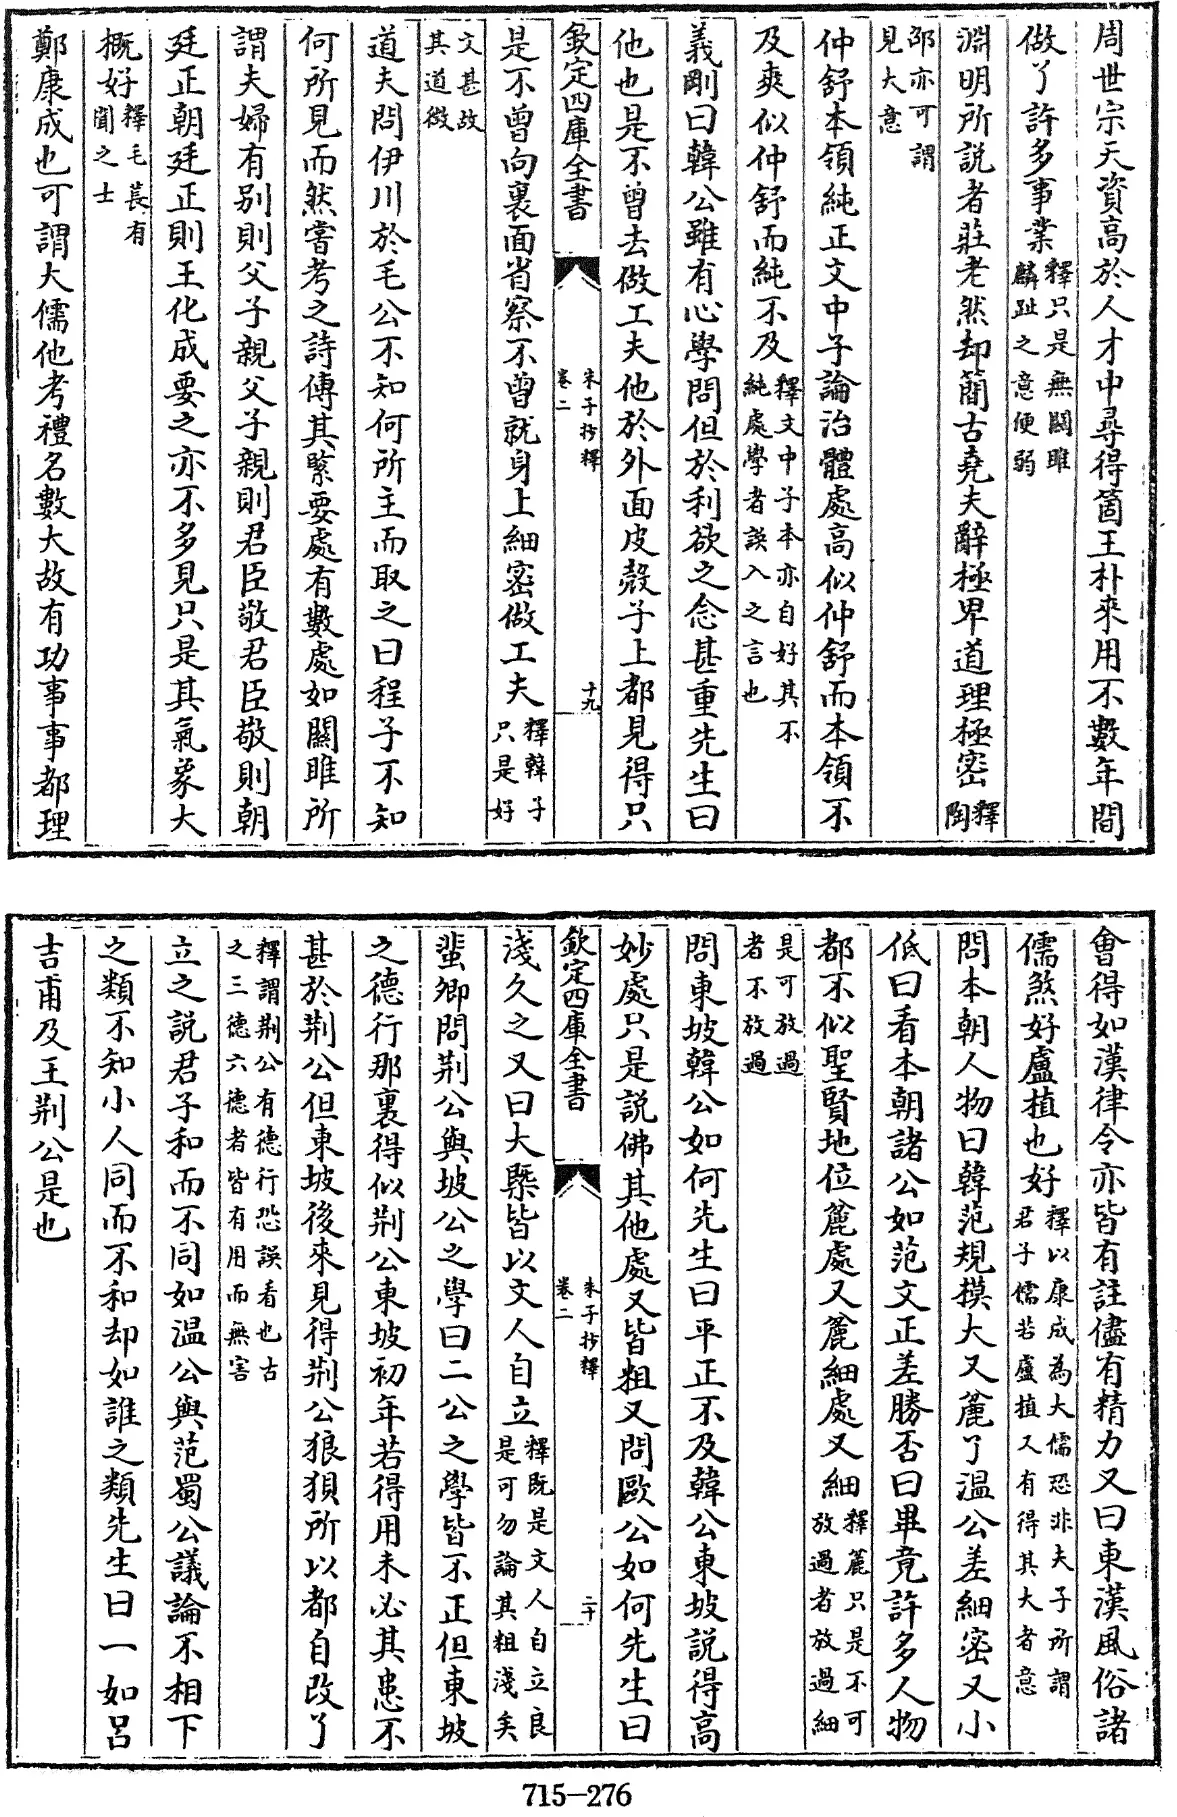 周世宗天資高於人才中尋得箇王朴來用不數年間
做了許多事業釋只是無關雎麟趾之意便弱
淵明所説者莊老然却簡古堯夫辭極卑道理極密釋陶
邵亦可謂見大意
仲舒本領純正文中子論治體處高似仲舒而本領不
及爽似仲舒而純不及釋文中子本亦自好其不純處學者誤入之言也
義剛曰韓公雖有心學問但於利欲之念甚重先生曰
他也是不曾去做工夫他於外面皮殼子上都見得只
欽定四庫全書 朱子抄釋 卷二 十九
是不曾向裏面省察不曾就身上細密做工夫釋韓子只是好
文甚故其道微
道夫問伊川於毛公不知何所主而取之曰程子不知
何所見而然嘗考之詩傳其緊要處有數處如關雎所
謂夫婦有别則父子親父子親則君臣敬君臣敬則朝
廷正朝廷正則王化成要之亦不多見只是其氣象大
概好釋毛萇有聞之士
鄭康成也可謂大儒他考禮名數大故有功事事都理
會得如漢律令亦皆有註儘有精力又曰東漢風俗諸
儒煞好盧植也好釋以康成為大儒恐非夫子所謂君子儒若盧植又有得其大者意
問本朝人物曰韓范規摸大又麄了温公差細密又小
低曰看本朝諸公如范文正差勝否曰畢竟許多人物
都不似聖賢地位麄處又麄細處又細釋麄只是不可放過者放過細
是可放過者不放過
問東坡韓公如何先生曰平正不及韓公東坡説得高
妙處只是説佛其他處又皆粗又問歐公如何先生曰
欽定四庫全書 朱子抄釋 卷二 二十
淺久之又曰大槩皆以文人自立釋既是文人自立良是可勿論其粗淺矣
蜚卿問荆公與坡公之學曰二公之學皆不正但東坡
之德行那裏得似荆公東坡初年若得用未必其患不
甚於荆公但東坡後來見得荆公狼狽所以都自改了
釋謂荆公有德行恐誤看也古之三德六德者皆有用而無害
立之説君子和而不同如温公與范蜀公議論不相下
之類不知小人同而不和却如誰之類先生曰一如吕
吉甫及王荆公是也
715-276